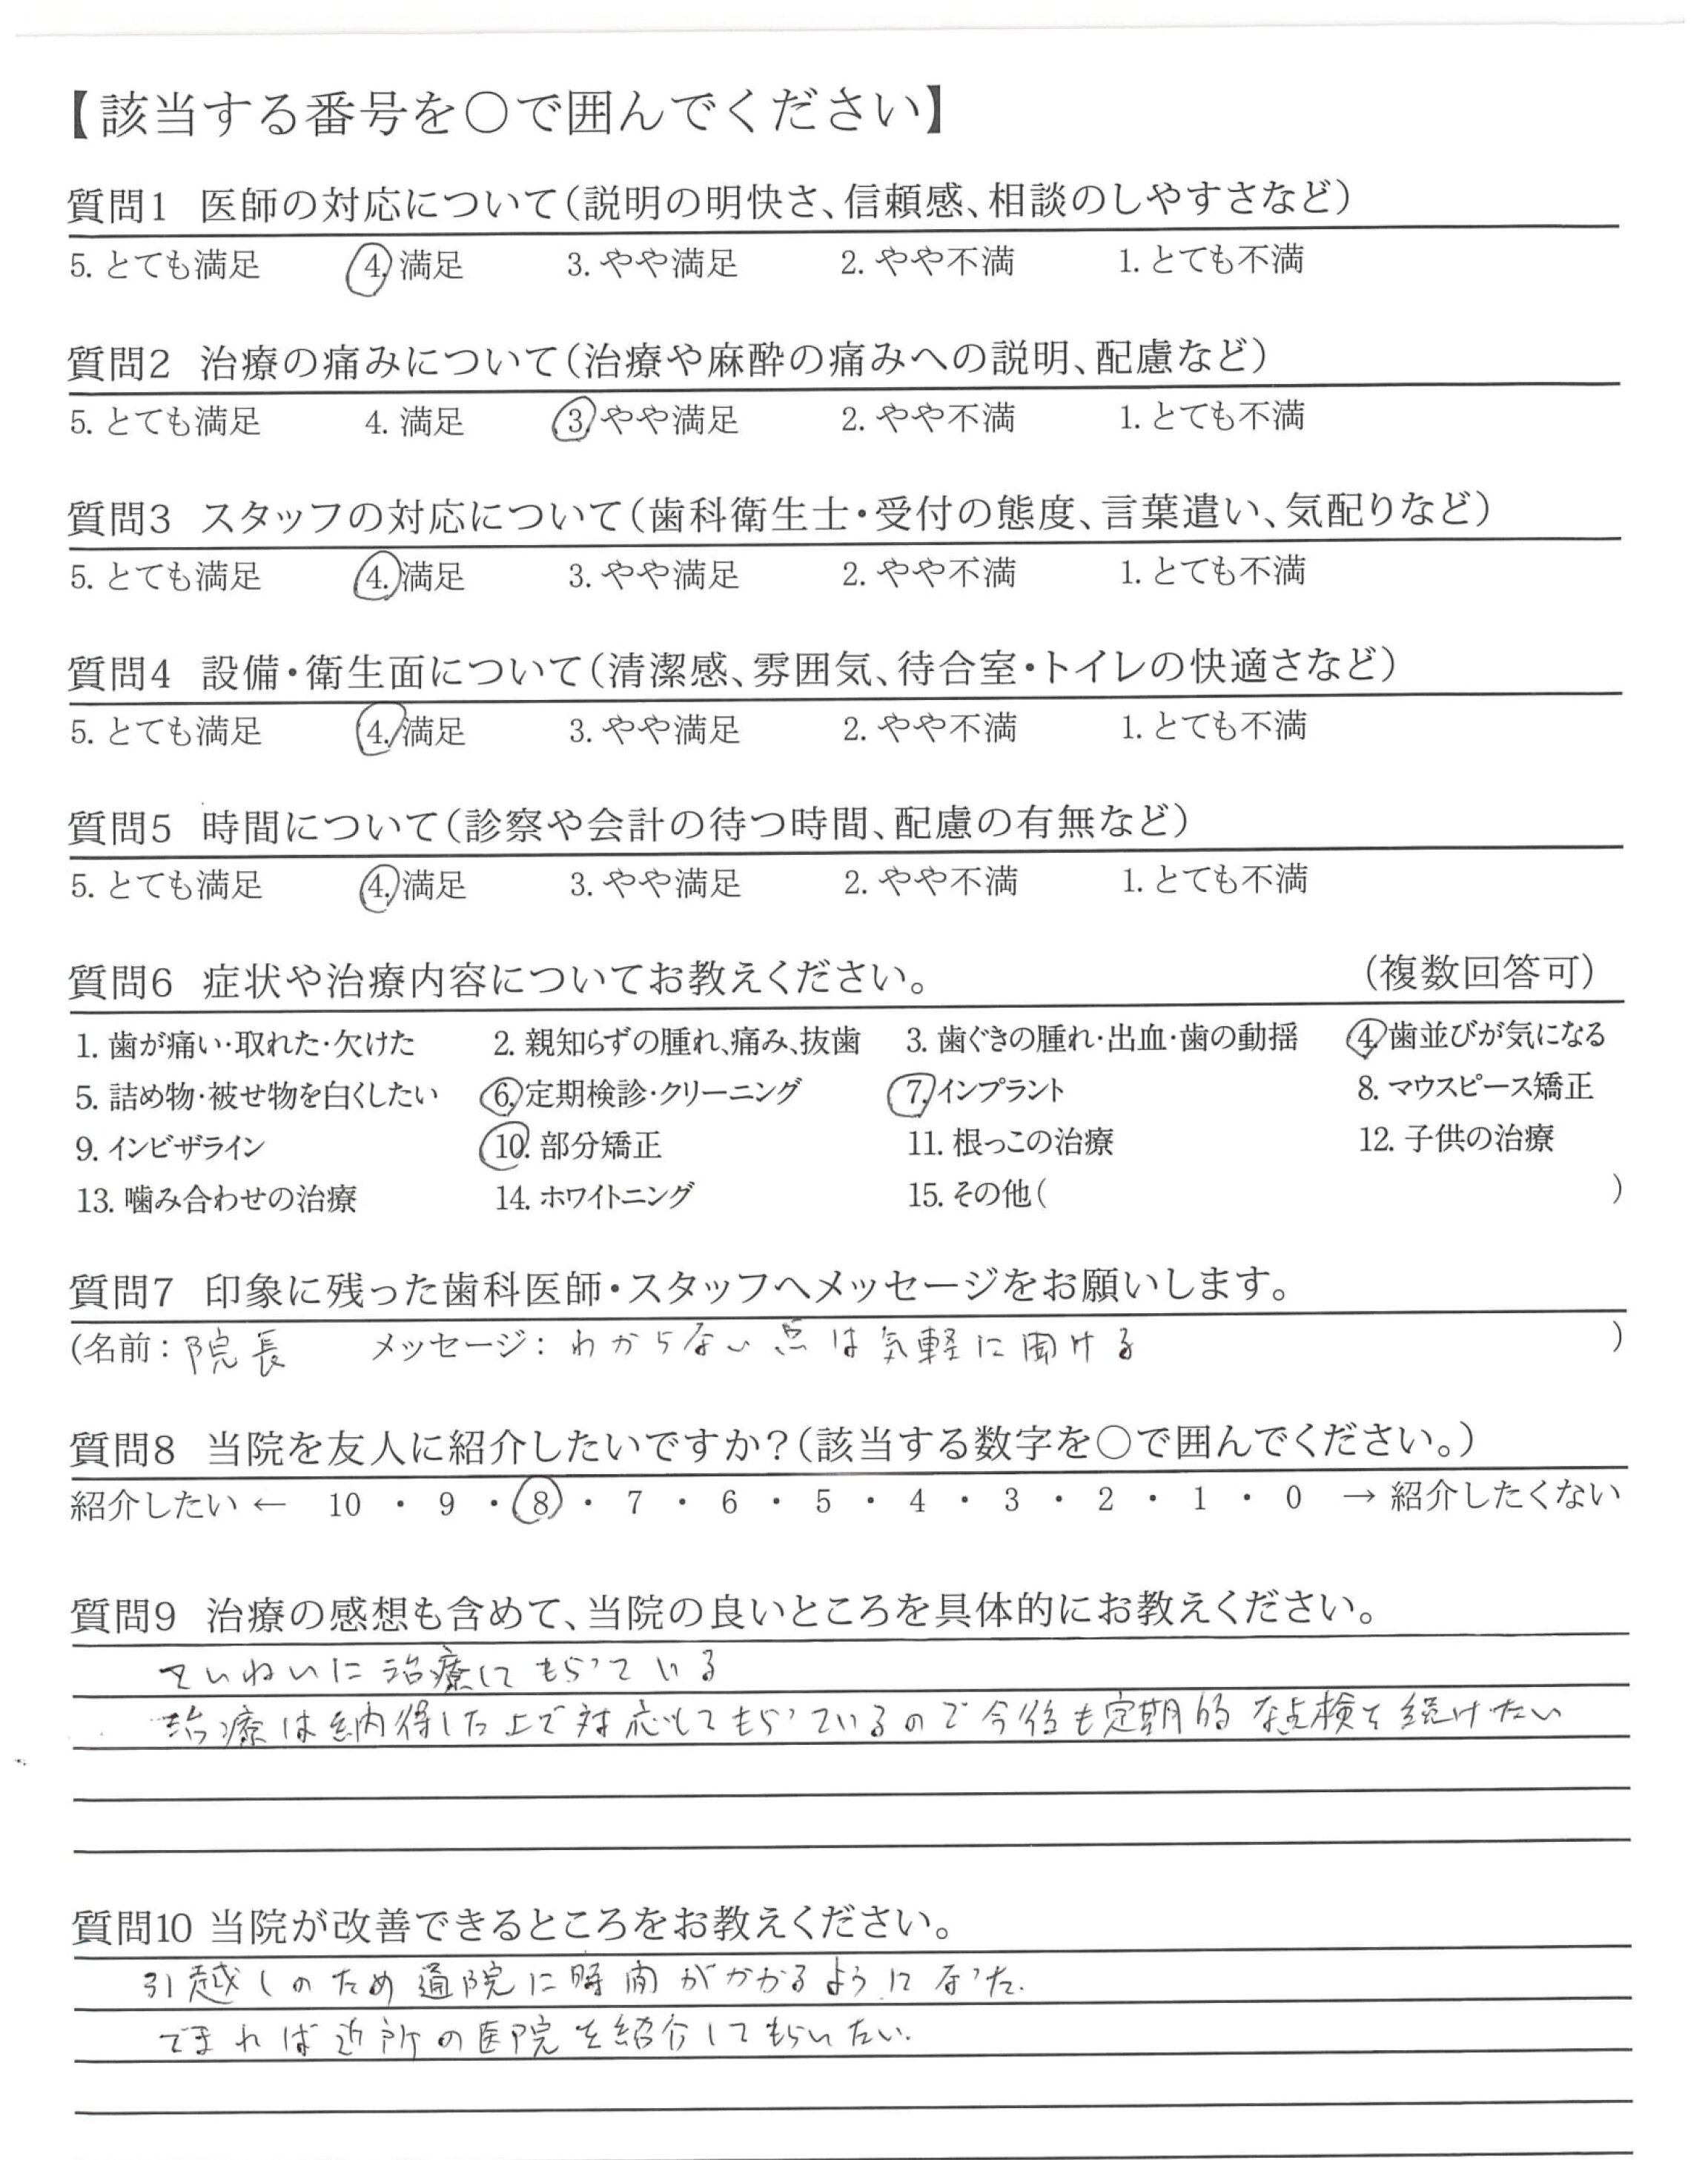 【該当する番号を○で囲んでください】
質問1 医師の対応について（説明の明快さ、信頼感、相談のしやすさなど）
5. とても満足 4. 満足 3. やや満足 2. やや不満 1. とても不満
質問2 治療の痛みについて（治療や麻酔の痛みへの説明、配慮など）
5. とても満足 4. 満足 3. やや満足 2. やや不満 1. とても不満
質問3 スタッフの対応について（歯科衛生士・受付の態度、言葉遣い、気配りなど）
5. とても満足 4. 満足 3. やや満足 2. やや不満 1. とても不満
質問4 設備・衛生面について（清潔感、雰囲気、待合室・トイレの快適さなど）
5. とても満足 4. 満足 3. やや満足 2. やや不満 1. とても不満
質問5 時間について（診察や会計の待つ時間、配慮の有無など）
5. とても満足 4. 満足 3. やや満足 2. やや不満 1. とても不満
質問6 症状や治療内容についてお教えください。 （複数回答可）
1. 歯が痛い・取れた・欠けた 2. 親知らずの腫れ、痛み、抜歯 3. 歯ぐきの腫れ・出血・歯の動揺 4. 歯並びが気になる
5. 詰め物・被せ物を白くしたい 6. 定期検診・クリーニング 7. インプラント 8. マウスピース矯正
9. インビザライン 10. 部分矯正 11. 根っこの治療 12. 子供の治療
13. 噛み合わせの治療 14. ホワイトニング 15. その他（ ）
質問7 印象に残った歯科医師・スタッフへメッセージをお願いします。
（名前：院長 メッセージ：わからない点は気軽に聞ける ）
質問8 当院を友人に紹介したいですか？（該当する数字を○で囲んでください。）
紹介したい ← 10 ・ 9 ・ 8 ・ 7 ・ 6 ・ 5 ・ 4 ・ 3 ・ 2 ・ 1 ・ 0 → 紹介したくない
質問9 治療の感想も含めて、当院の良いところを具体的にお教えください。
ていねいに治療してもらっている
治療は納得した上で対応してもらっているので今後も定期的な点検を続けたい
質問10 当院が改善できるところをお教えください。
引越しのため通院に時間がかかるようになった.
できれば近所の医院を紹介してもらいたい.